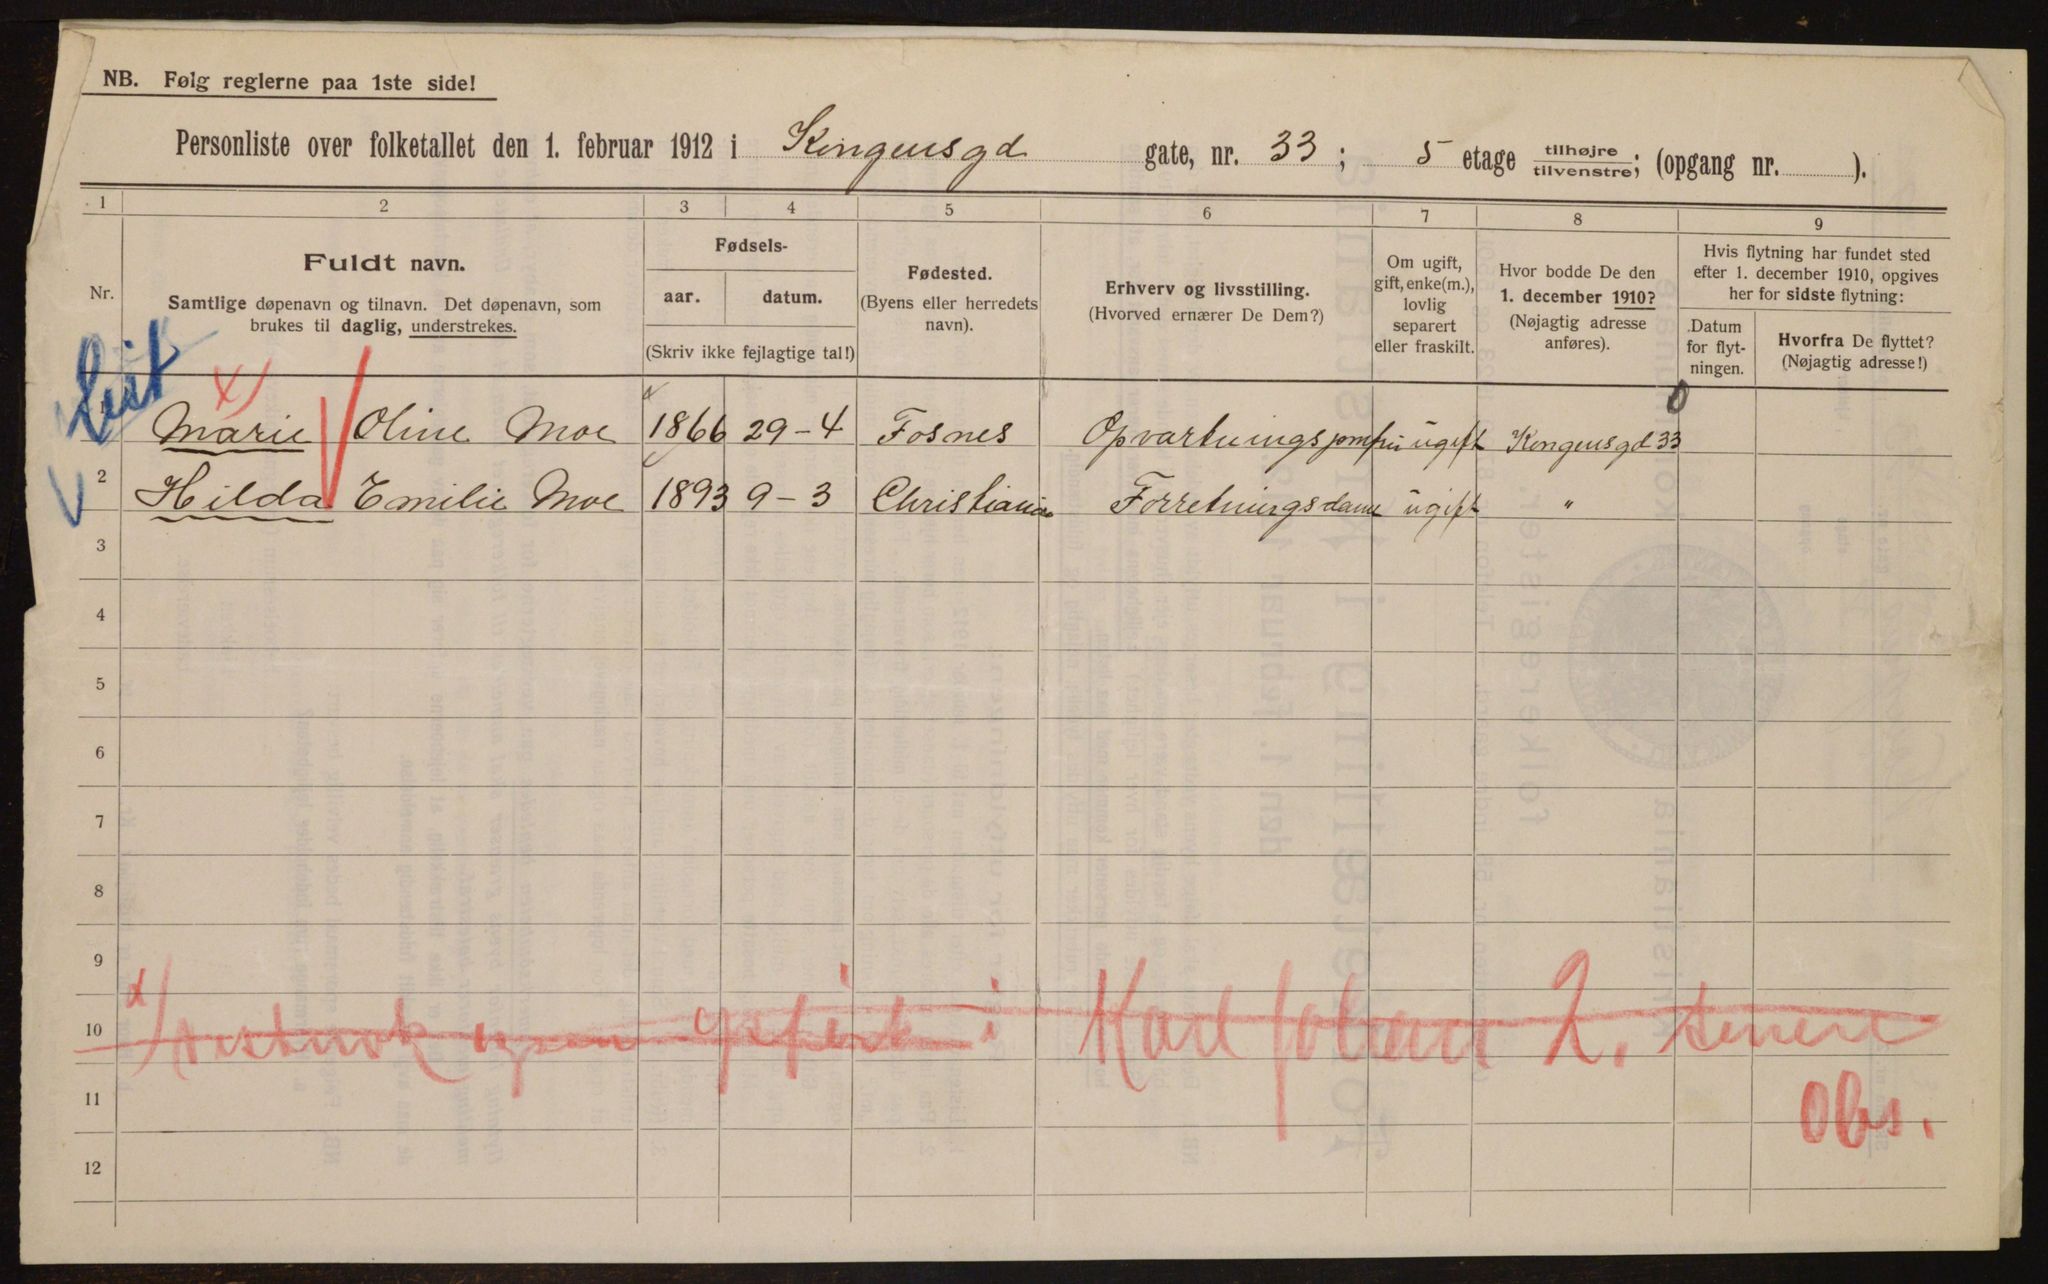 NB. Følg reglerne paa 1ste side!
Personliste over folketallet den 1. februar 1912 i Kongensgd gate, nr. 33; 5 etage tilhøjre/tilvenstre; (opgang nr. ).
1 2 3 4 5 6 7 8 9
Nr.
Fuldt navn.
Samtlige døpenavn og tilnavn. Det døpenavn, som
brukes til daglig, understrekes.
Fødsels-
aar. datum.
(Skriv ikke fejlagtige tal!)
Fødested.
(Byens eller herredets
navn).
Erhverv og livsstilling.
(Hvorved ernærer De Dem?)
Om ugift,
gift, enke(m.),
lovlig
separert
eller fraskilt.
Hvor bodde De den
1. december 1910?
(Nøjagtig adresse
anføres).
Hvis flytning har fundet sted
efter 1. december 1910, opgives
her for sidste flytning:
Datum
for flyt-
ningen.
Hvorfra De flyttet?
(Nøjagtig adresse!)
Marie Oline Moe 1866 29-4 Fosnes Opvartningsjomfru ugift Kongensgd 33
2 Hilda Emilie Moe 1893 9-3 Christiania Forretningsdame ugift "
3
4
5
6
7
8
9
x/ i Karl Johan 2.
10
11 Obs.
12